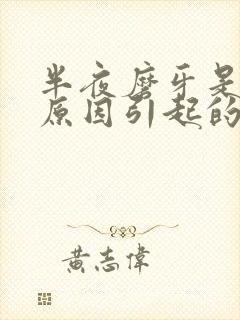 半夜磨牙是
原因引起的
黄志偉